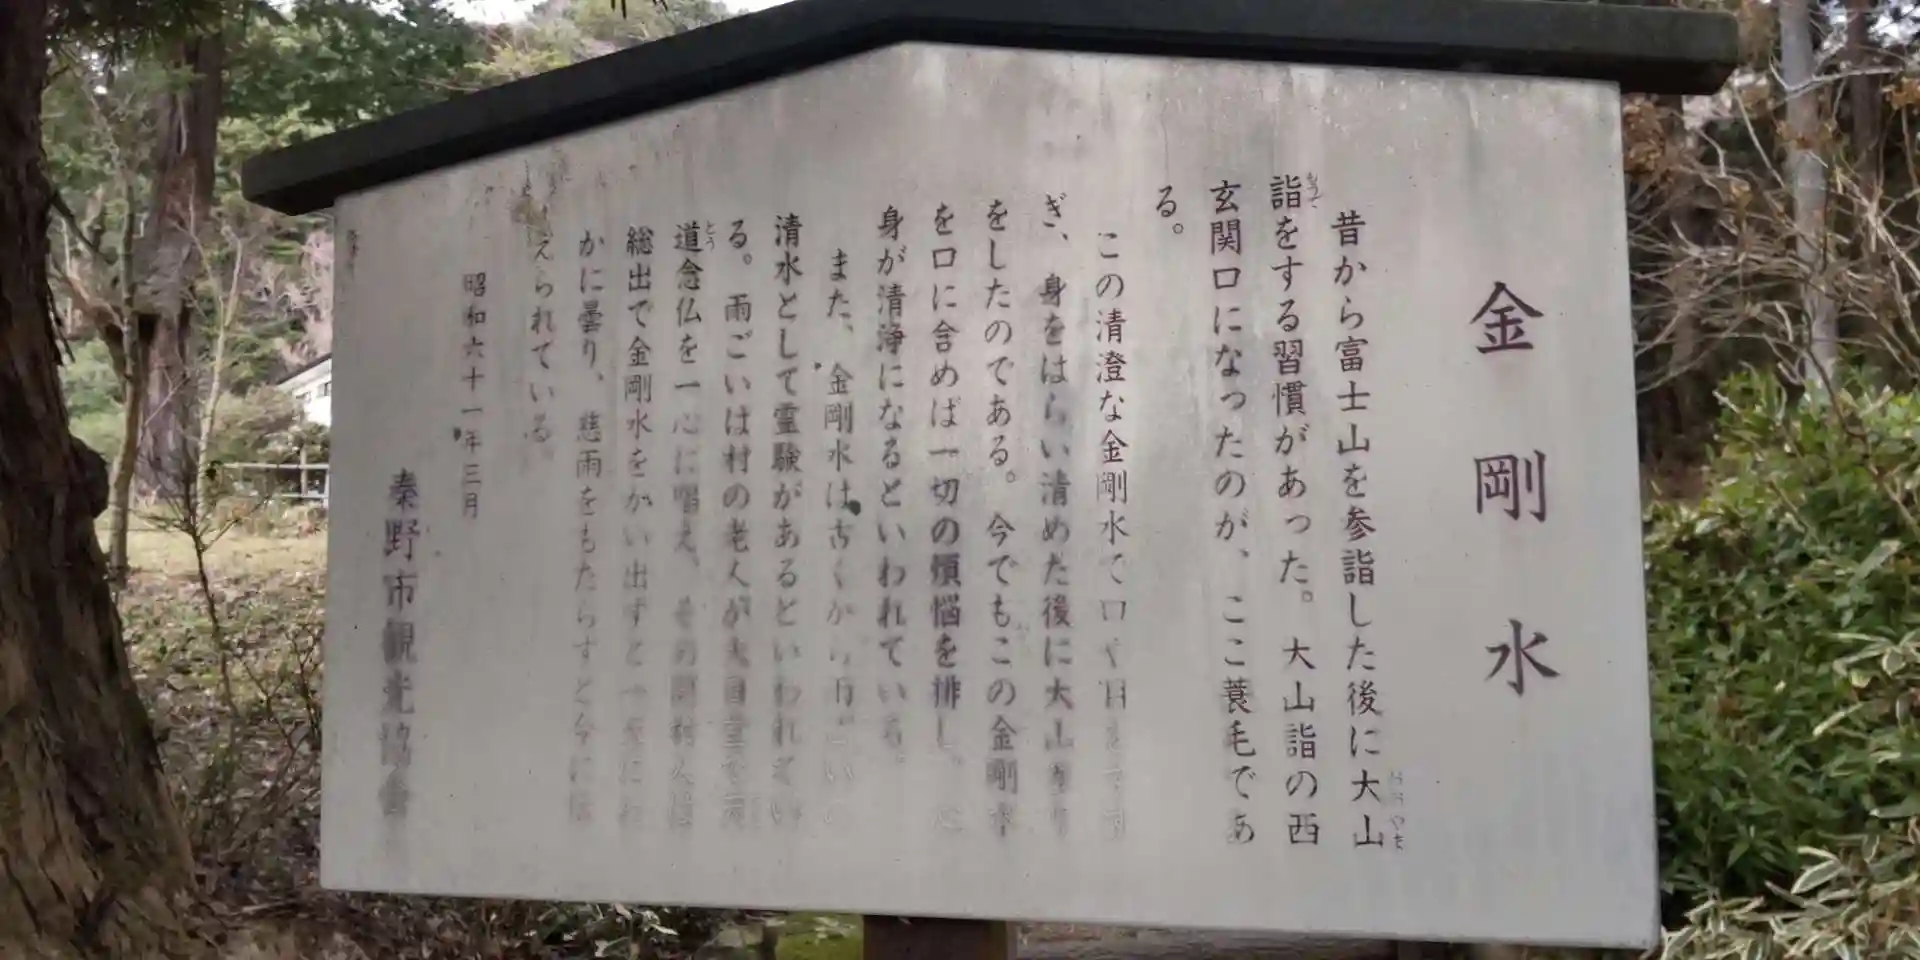 金剛水
昔から富士山を参詣した後に大山
詣をする習慣があった。大山詣の西
玄関口になったのが、ここ蓑毛であ
る。
この清澄な金剛水で口や目をすす
ぎ、身をはらい清めた後に大山参り
をしたのである。今でもこの金剛水
を口に含めば一切の煩悩を排し、心
身が清浄になるといわれている。
また、金剛水は古くから雨ごいの
清水として霊験があるといわれてい
る。雨ごいは村の老人が大日堂で
道念仏を一心に唱え、その間村人は
総出で金剛水をかい出すと
かに曇り、慈雨をもたらすと今に伝
えられている。
昭和六十一年三月
秦野市観光協会